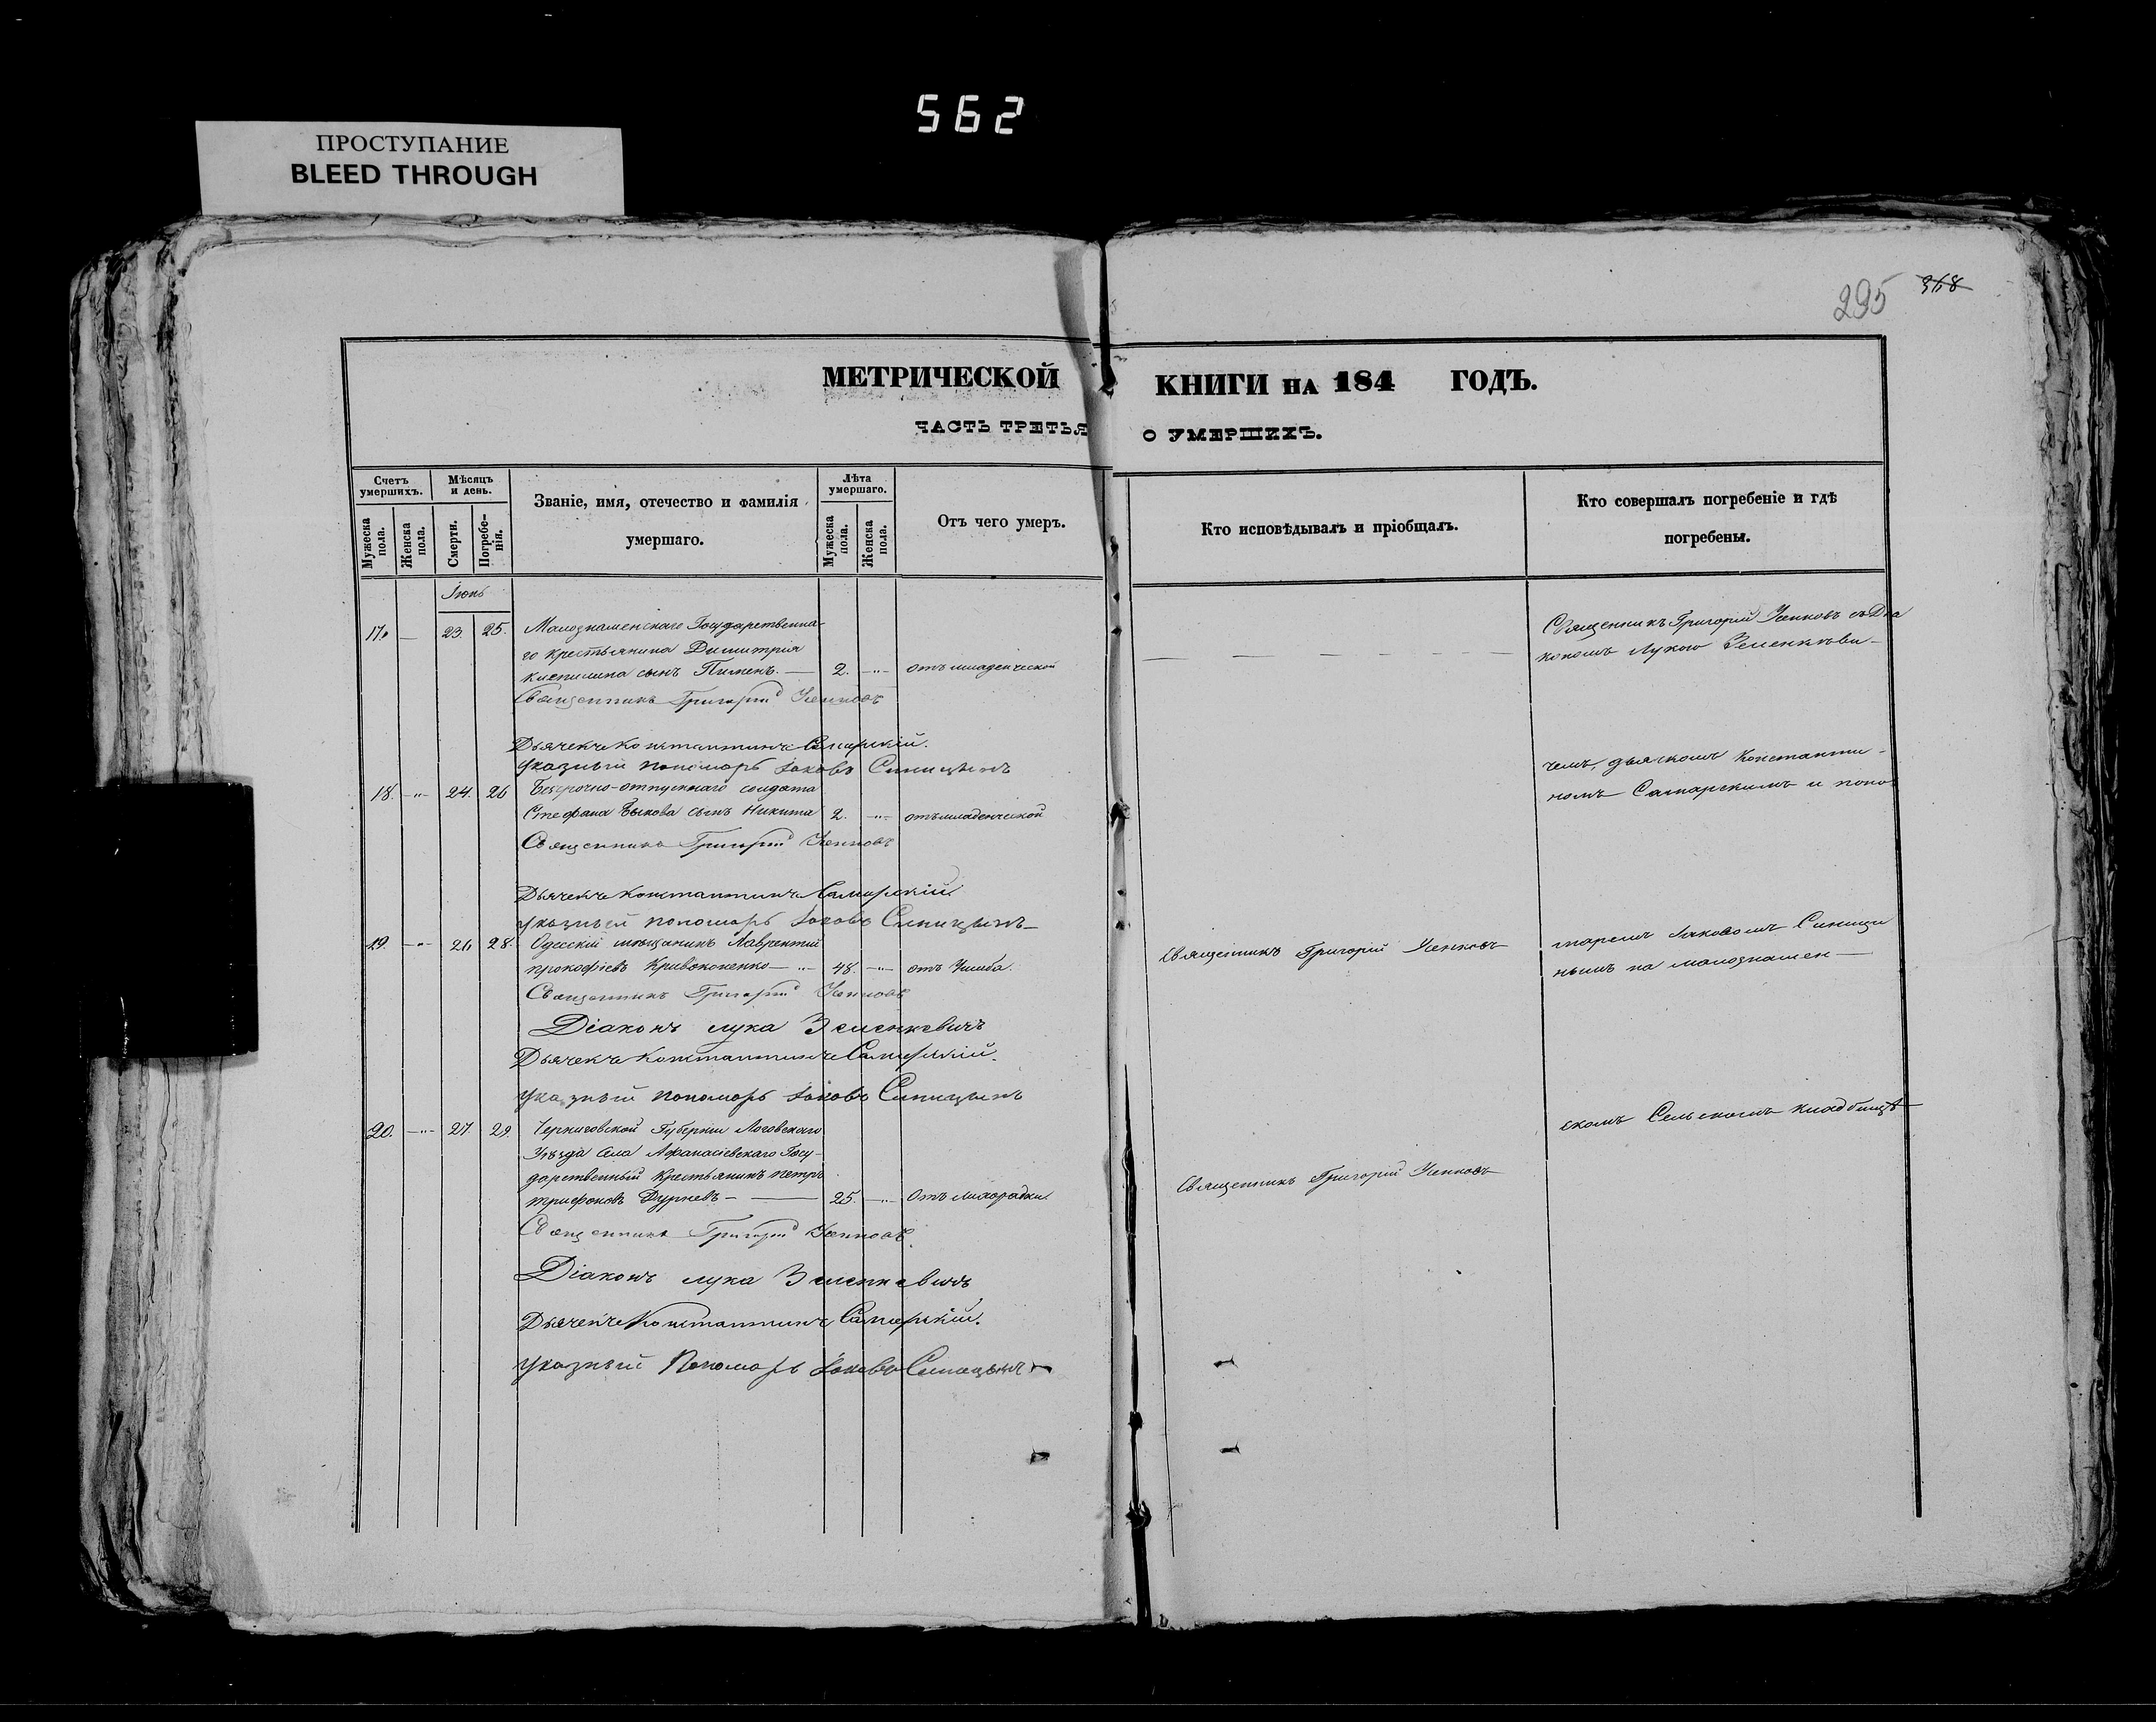 562
ПРОСТУПАНИЕ
BLEED THROUGH
295 368
МЕТРИЧЕСКОЙ КНИГИ НА 184 ГОДЪ.
ЧАСТЬ ТРЕТЬЯ О УМЕРШИХЪ.
Счетъ умершихъ.
Мѣсяцъ и день.
Званіе, имя, отечество и фамилія умершаго.
Лѣта умершаго.
Отъ чего умеръ.
Кто исповѣдывалъ и пріобщалъ.
Кто совершалъ погребеніе и гдѣ погребены.
Мужеска пола.
Женска пола.
Смерти.
Погребенія.
Мужеска пола.
Женска пола.
Іюнь
17. — 23. 25. Малознаменскаго Государственна-
го крестьянина Димитрія
сынъ Пименъ. — 2. —"— отъ младенческой
Священникъ Григорій Усенковъ
Дьячекъ Константинъ Самарскій.
Указный пономарь Іаковъ Синицынъ
18. —"— 24. 26 Безсрочно-отпускнаго солдата
Стефана Быкова сынъ Никита 2. —"— отъ младенческой
Священникъ Григорій Усенковъ
Дьячекъ Константинъ Самарскій
Указный пономарь Іаковъ Синицынъ
19. —"— 26 28. Одесскій мещанинъ Лаврентий
прокофіевъ Кривоконенко —"— 48. —"— отъ Ушиба.
Священникъ Григорій Усенковъ
Діаконъ лука Зеленкевичъ
Дьячекъ Константинъ Самарскій.
Указный пономарь Іаковъ Синицынъ
20. —"— 27. 29. Черниговской Губерніи
Уѣзда Села Афанасіевскаго Госу-
дарственный крестьянинъ петръ
трифоновъ Дурневъ — 25. —"— Отъ лихорадки
Священникъ Григорій Усенковъ
Діаконъ лука Зеленкевичъ
Дьячекъ Константинъ Самарскій.
Указный Пономарь Іаковъ Синицынъ
Священникъ Григорій Усенковъ
Священникъ Григорій Усенковъ
Священникъ Григорій Усенковъ съ Діа
кономъ Лукою Зеленкеви-
чемъ, дьячкомъ Константи-
номъ Самарскимъ и поно
маремъ Іаковомъ Синици
нымъ на малознамен-
скомъ Сельскомъ кладбищѣ